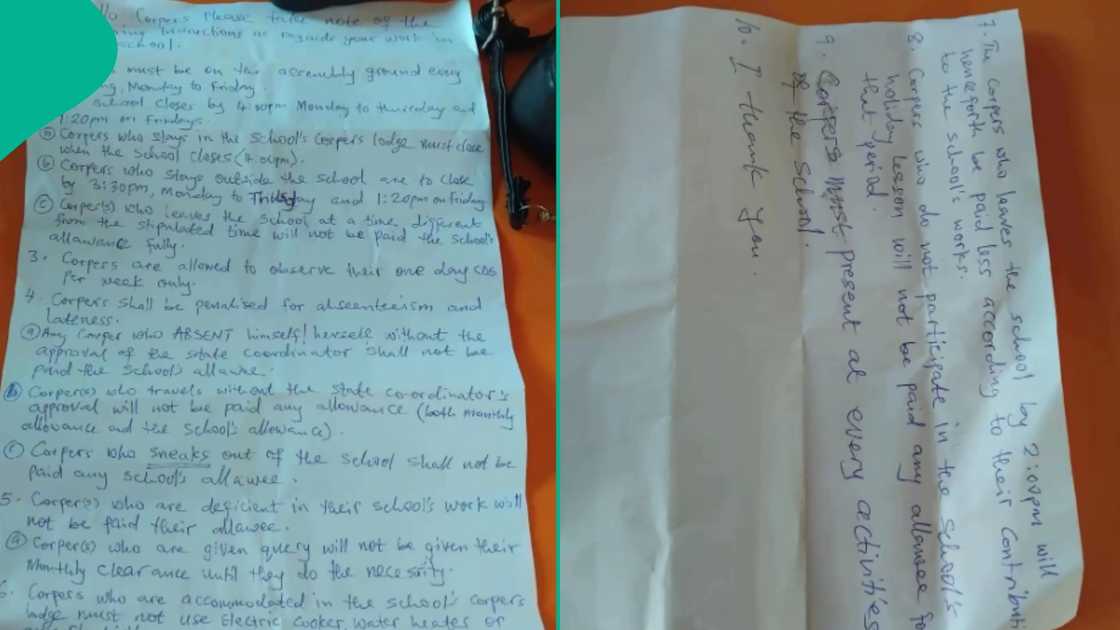 llo Corpers Please take note of the
ing Instructions as regards your work in
school.
must be on the assembly ground every
ng, Monday to Friday.
school closes by 4:00pm Monday to thursday and
1:20pm on Fridays.
(a) Corpers who stays in the school's Corpers lodge must close
when the school closes (4.00pm).
(b) Corpers who stays outside the school are to close
by 3:30pm, Monday to Thursday and 1:20pm on Friday
(c) Corper(s) who leaves the school at a time different
from the stipulated time will not be paid the school's
allawance fully.
3. Corpers are allowed to observe their one day CDS
per week only.
4. Corpers shall be penalised for absenteeism and
lateness.
(a) Any Corper who ABSENT himself/herself without the
approval of the state coordinator shall not be
paid the school's allawee.
(b) Corper(s) who travels without the state co-ordinator's
approval will not be paid any allowance (both monthly
allowance and the school's allowance).
(c) Corpers who sneaks out of the school shall not be
paid any school's allawee.
5. Corper(s) who are deficient in their school's work will
not be paid their allawee.
(a) Corper(s) who are given query will not be given their
Monthly clearance until they do the necessity.
6. Corpers who are accommodated in the school's corpers
lodge must not use Electric Cooker, water heater or
7. The corpers who leaves the school by 2:00pm will
henceforth be paid less according to their Contributi
to the school's works.
8. Corpers who do not participate in the school's
holiday lesson will not be paid any allawee fo
that period.
9. Corpers Must present at every activities
of the school.
10. I thank you.